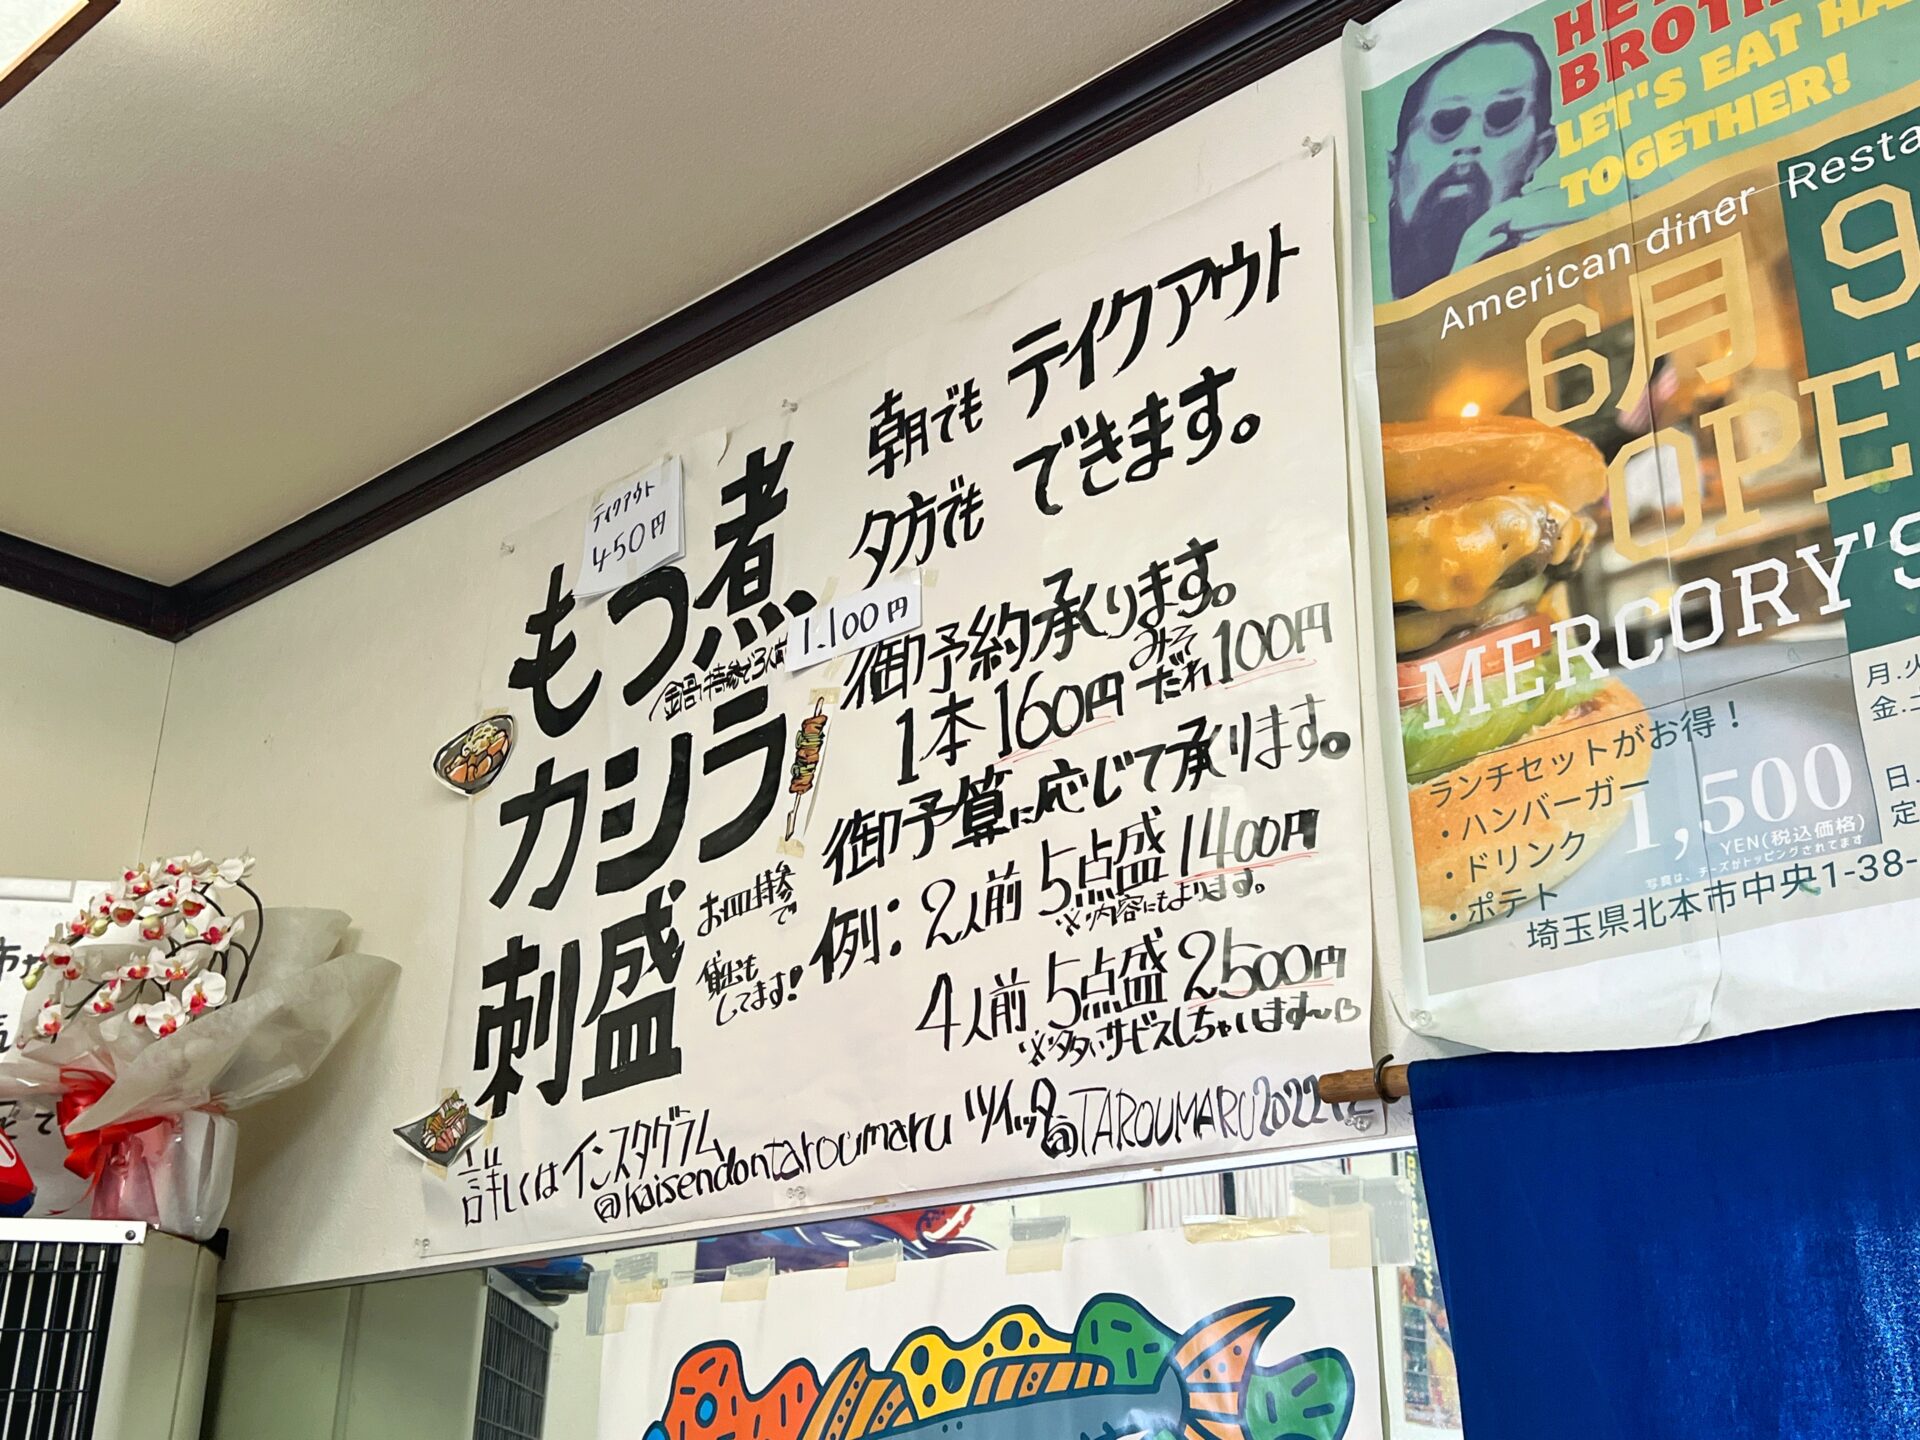 テイクアウト
450円
もつ煮
朝でも
夕方でも
テイクアウト
できます。
1.100円
カシラ
御予約承ります。
1本160円 みそだれ100円
刺盛
お皿持参で
貸出もしてます!
御予算に応じて承ります。
例:2人前 5点盛 1400円
※内容にもよります。
4人前 5点盛 2500円
※多タいサービスしちゃいます〜
詳しくはインスタグラム
@kaisendontaroumaru ツイッター@TAROUMARU2022
LET'S EAT
TOGETHER!
American diner
6月 9
MERCORY'S
ランチセットがお得!
・ハンバーガー
・ドリンク
・ポテト
1,500
YEN(税込価格)
写真は、チーズがトッピングされてます
埼玉県北本市中央1-38-